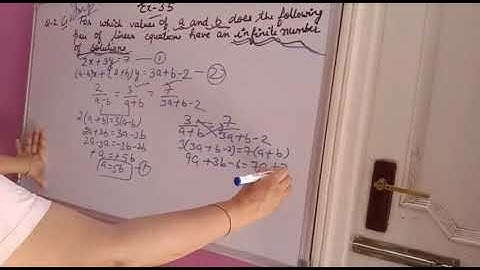 Ex-3.5
Q-2 (i) For which values of a and b does the following
pair of linear equations have an infinite number
of solutions
2x+3y=7 —①
(a-b)x+(a+b)y=3a+b-2 —②
2/a-b = 3/a+b = 7/3a+b-2
2(a+b)=3(a-b)
2a+2b=3a-3b
2a-3a=-3b-2b
+a=+5b
a=5b —①
3/a+b 7/3a+b-2
3(3a+b-2)=7(a+b)
9a+3b-6=7a+7